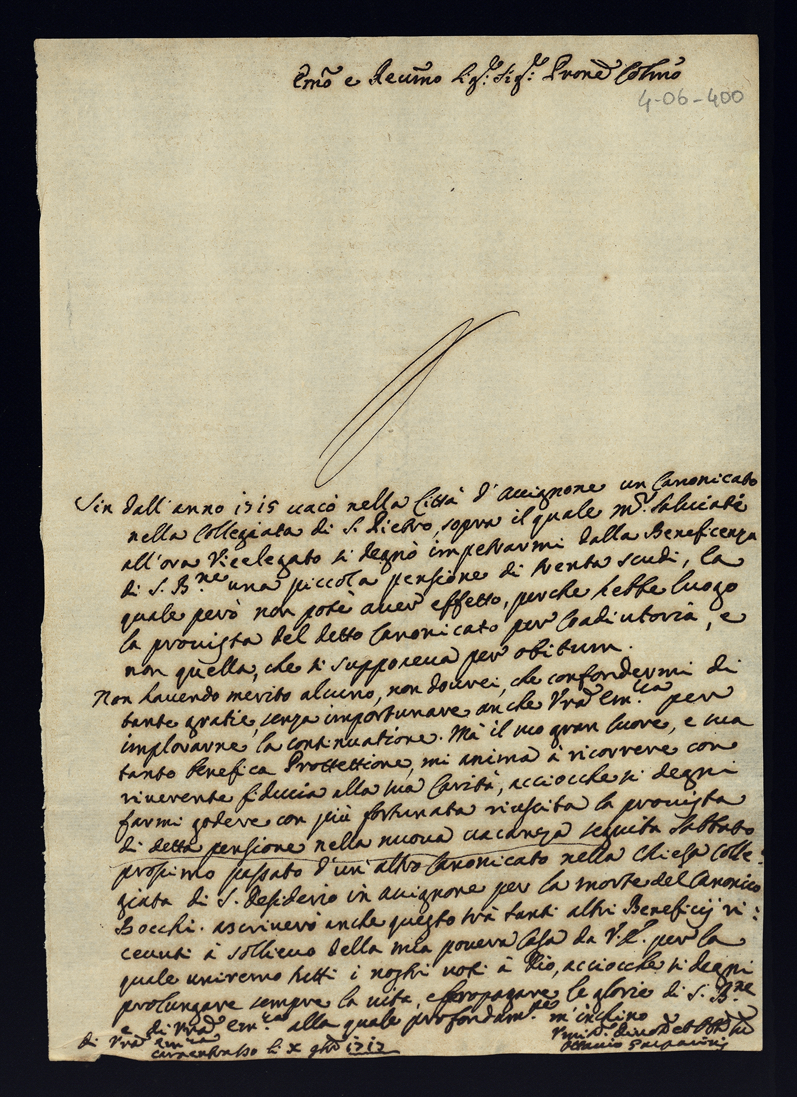 Emõ e Reumo Sig.re Sig.re Prone Colmo
4-06-400
Sin dall'anno 1715 uacò nella Città d'Auignone un Canonicato
nella Collegiata di S. Pietro, sopra il quale m.r Saluiati
all'ora Vicelegato si degnò impetrarmi dalla Beneficenza
di S. B.ne una piccola pensione di trenta scudi, la
quale però non potè auer effetto, perche hebbe luogo
la prouista del detto Canonicato per Coadiutoria, e
non quella, che si supponeua per obitum.
Non hauendo merito alcuno, non dourei, che confondermi di
tante gratie, senza importunare anche Vrã Em.za per
implorarne la continuatione. Mà il suo gran Cuore, e sua
tanto benefica Prottettione, mi anima à ricorrere con
riuerente fiducia alla sua Carità, acciocche si degni
farmi godere con più fortunata riuscita la prouista
di detta pensione nella nuoua uacanza seguita Sabbato
prossimo passato d'un'altro Canonicato nella Chiesa Colle:
giata di S. Desiderio in Auignone per la morte del Canonico
Bocchi. ascriuerò anche questo trà tanti altri Beneficij ri:
ceuuti à sollieuo della mia pouera Casa da V. E. per la
quale uniremo tutti i nostri uoti à Dio, acciocche si degni
prolungare sempre la uita, e propagare le glorie di S. B.ne
e di Vrã Em.za alla quale profondam.te m'inchino
di Vrã Em.za
Carpentrasso li X 9bre 1717